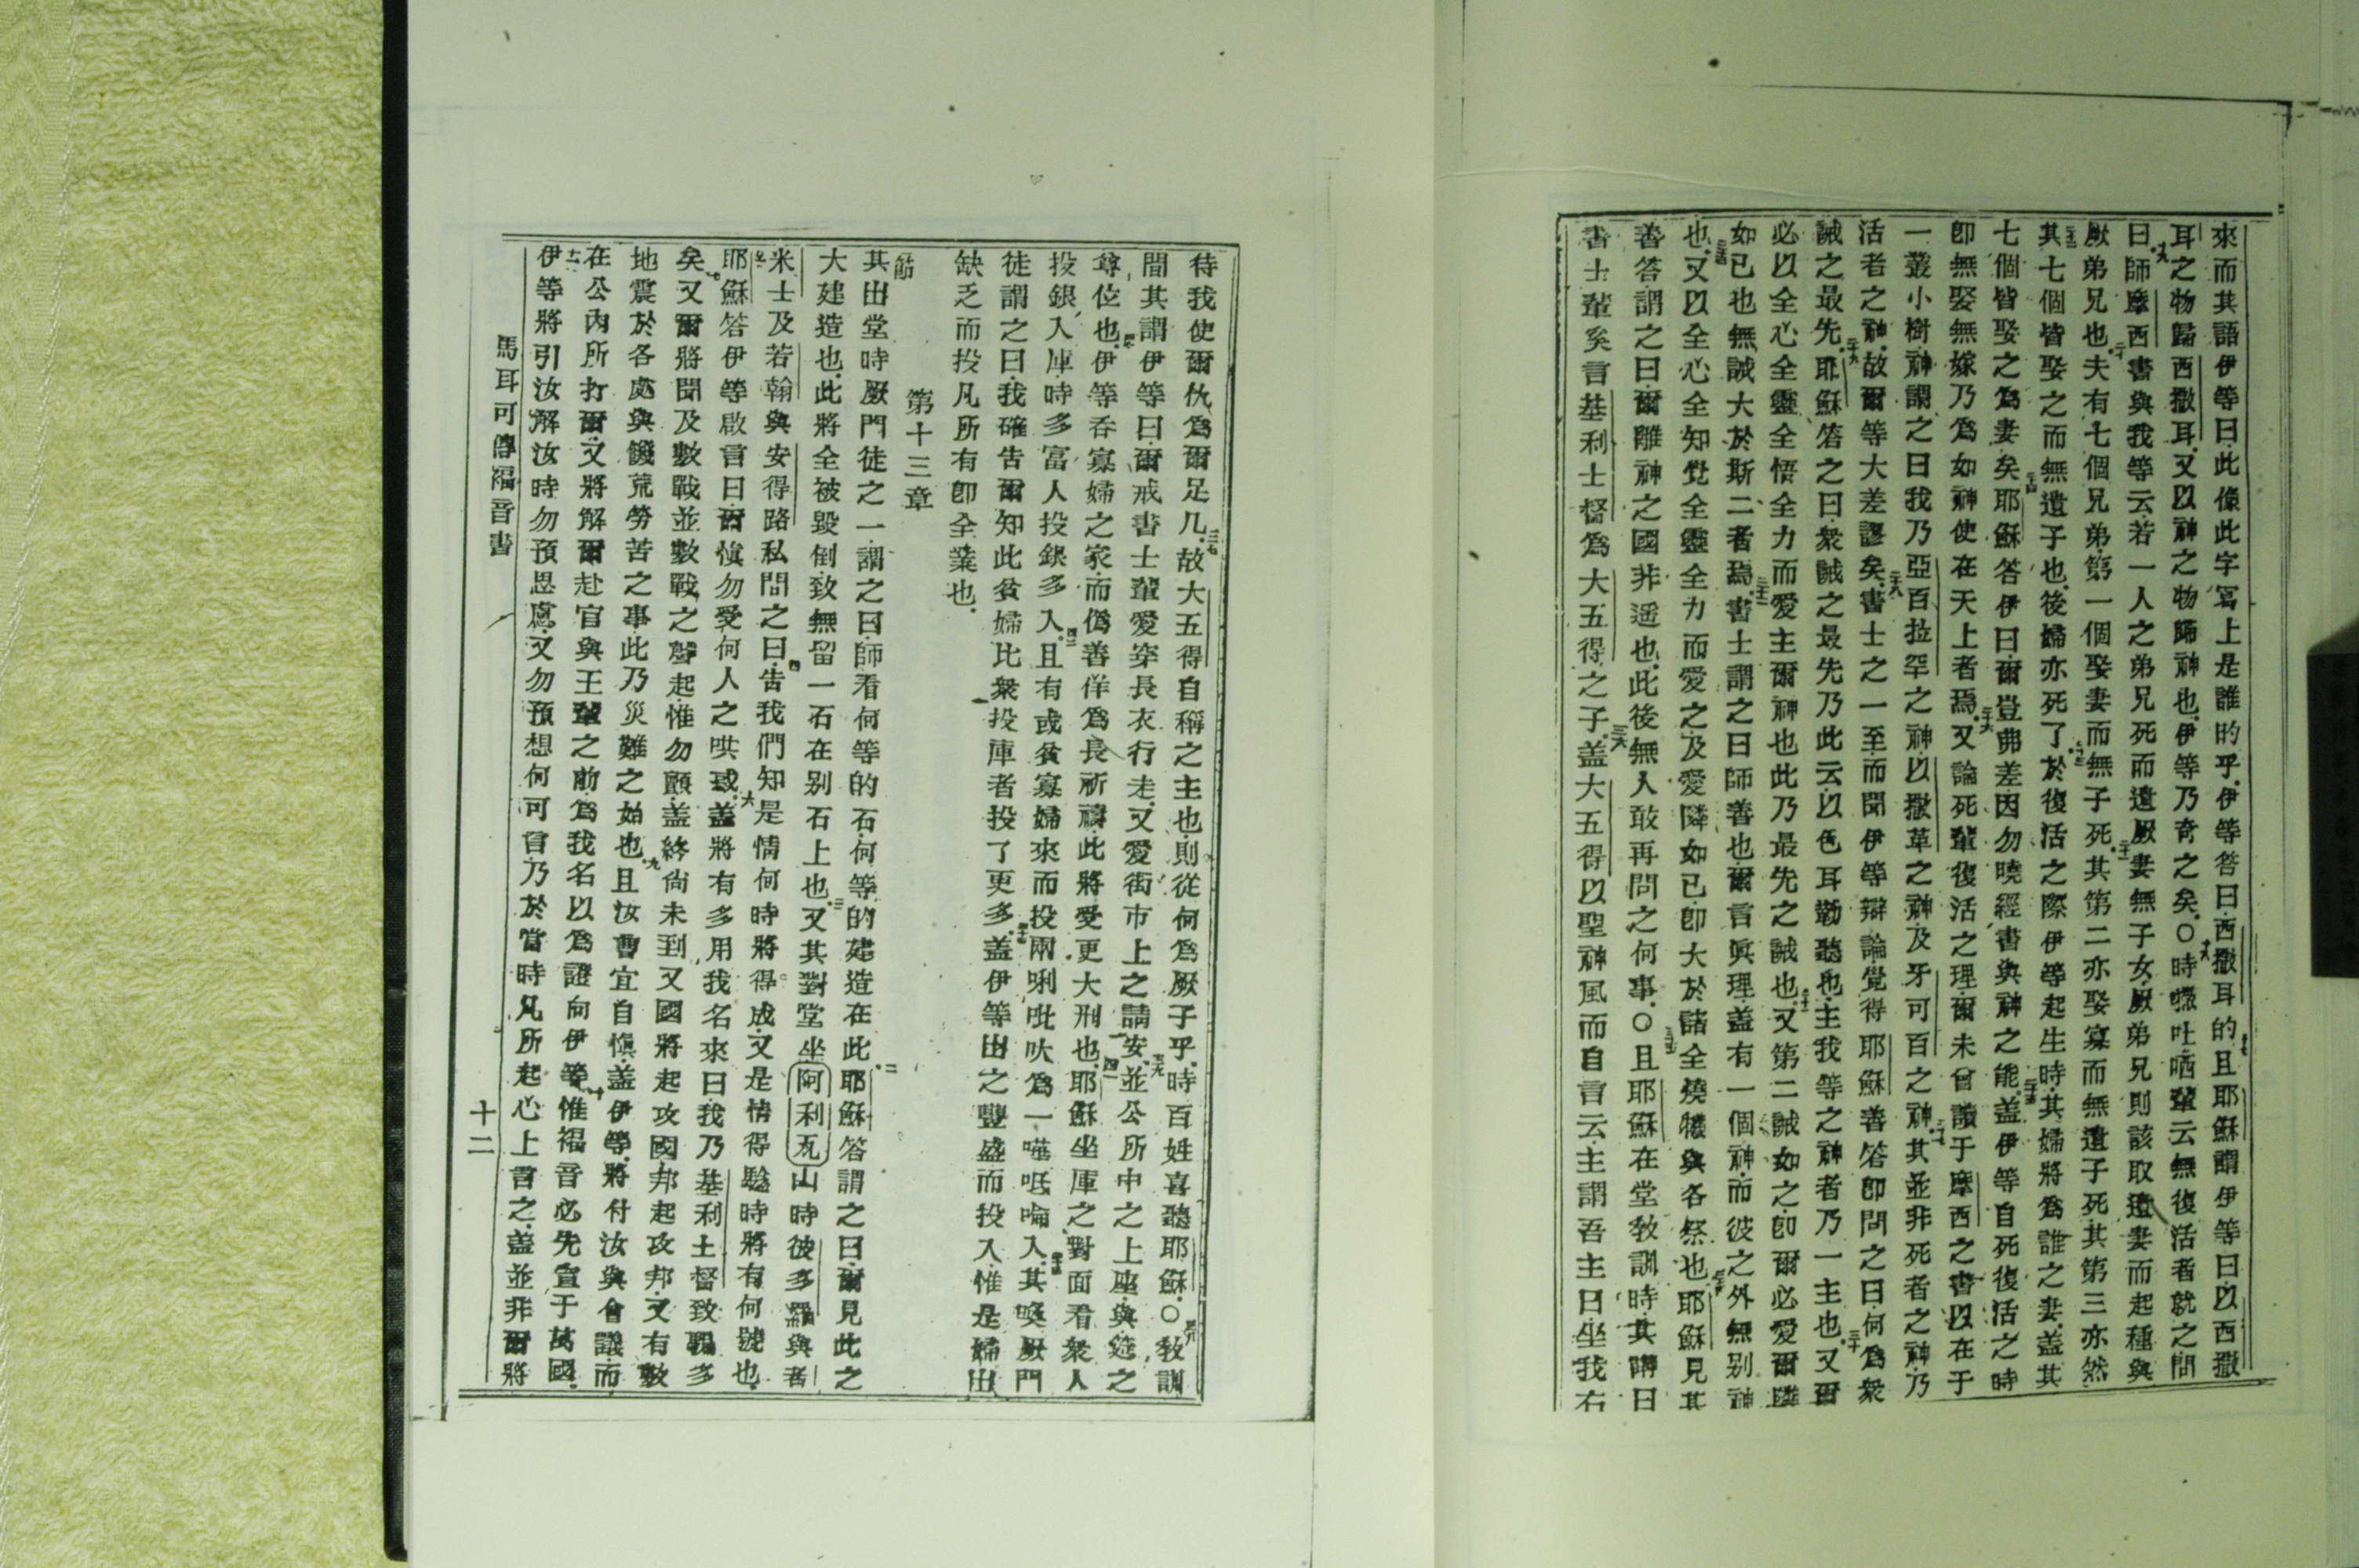 來而其語伊等曰此像此字寫上是誰的乎伊等答曰西撒耳的且耶穌謂伊等曰以西撒
耳之物歸西撒耳又以神之物歸神也伊等乃奇之矣○時㘔吐哂輩云無復活者就之問
曰師摩西書與我等云若一人之弟兄死而遺厥妻無子女厥弟兄則該取遺妻而起種與
厥弟兄也夫有七個兄弟第一個娶妻而無子死其第二亦娶寡而無遺子死其第三亦然
其七個皆娶之而無遺子也後婦亦死了於復活之際伊等起生時其婦將爲誰之妻蓋其
七個皆娶之爲妻矣耶穌答伊曰爾豈弗差因勿曉經書與神之能蓋伊等自死復活之時
卽無娶無嫁乃爲如神使在天上者焉又論死輩復活之理爾未曾讀于摩西之書以在于
一叢小樹神謂之曰我乃亞百拉罕之神以撒革之神及牙可百之神其並非死者之神乃
活者之神故爾等大差謬矣書士之一至而聞伊等辯論覺得耶穌善答卽問之曰何爲衆
誡之最先耶穌答之曰衆誡之最先乃此云以色耳勒聽也主我等之神者乃一主也又爾
必以全心全靈全悟全力而愛主爾神也此乃最先之誡也又第二誡如之卽爾必愛爾隣
如己也無誡大於斯二者焉書士謂之曰師善也爾言眞理蓋有一個神而彼之外無别神
也又以全心全知覺全靈全力而愛之及愛隣如己卽大於諸全燒犧與各祭也耶穌見其
善答謂之曰爾離神之國非遥也此後無人敢再問之何事○且耶穌在堂敎訓時其講曰
書士輩奚言基利士督爲大五得之子蓋大五得以聖神風而自言云主謂吾主曰坐我右
待我使爾仇爲爾足几故大五得自稱之主也則從何爲厥子乎時百姓喜聽耶穌○敎訓
間其謂伊等曰爾戒書士輩愛穿長衣行走又愛街市上之請安並公所中之上座與筵之
尊位也伊等吞寡婦之家而僞善佯爲長祈禱此將受更大刑也耶穌坐庫之對面看衆人
投銀入庫時多富人投銀多入且有或貧寡婦來而投兩唎吡吠爲一嘩呧喻入其喚厥門
徒謂之曰我確告爾知此貧婦比衆投庫者投了更多蓋伊等由之豐盛而投入惟是婦由
缺乏而投凡所有卽全業也
第十三章
其出堂時厥門徒之一謂之曰師看何等的石何等的建造在此耶穌答謂之曰爾見此之
大建造也此將全被毀倒致無留一石在别石上也又其對堂坐阿利瓦山時彼多羅與者
米士及若翰與安得路私問之曰告我們知是情何時將得成又是情得騐時將有何號也
耶穌答伊等啟言曰爾愼勿受何人之哄惑蓋將有多用我名來曰我乃基利士督致騙多
矣又爾將聞及數戰並數戰之聲起惟勿顧蓋終尙未到又國將起攻國邦起攻邦又有數
地震於各處與饑荒勞苦之事此乃災難之始也且汝曹宜自愼蓋伊等將付汝與會議而
在公內所打爾又將解爾赴官與王輩之前爲我名以爲證向伊等惟福音必先宣于萬國
伊等將引汝解汝時勿預思慮又勿預想何可言乃於當時凡所起心上言之蓋並非爾將
馬耳可傳福音書
十二